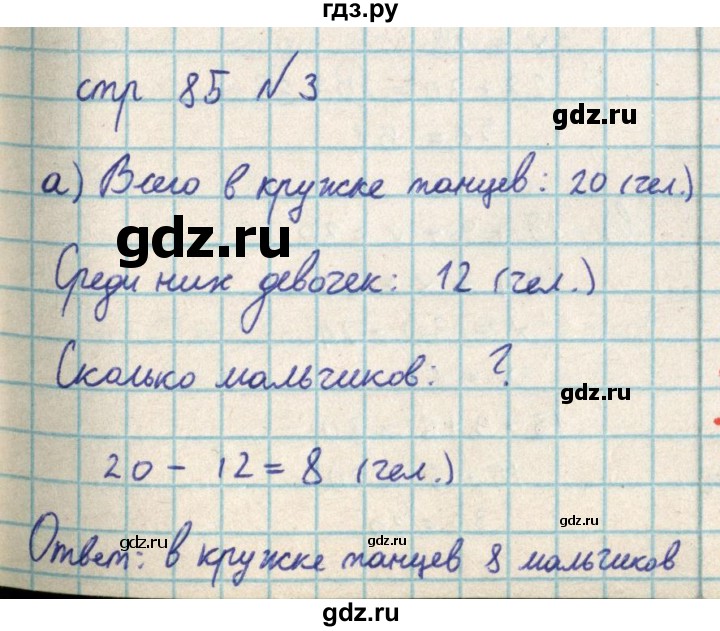 гдз.ру
стр 85 №3
gdz.ru
а) Всего в кружке танцев: 20 (чел.)
gdz.ru
Среди них девочек: 12 (чел.)
Сколько мальчиков: ?
gdz.ru
20 - 12 = 8 (чел.)
gdz.ru
gdz.ru
Ответ: в кружке танцев 8 мальчиков
gdz.ru